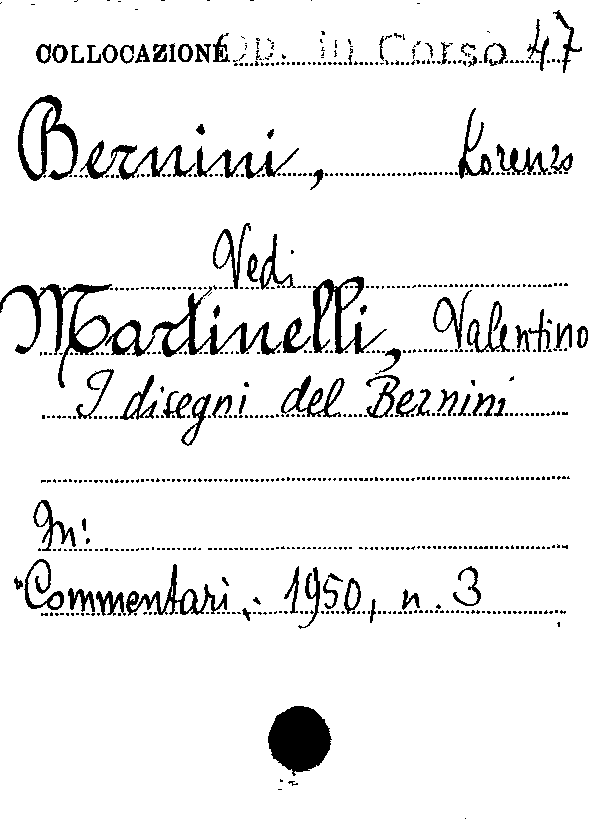 COLLOCAZIONE Op. in Corso 47
Bernini, Lorenzo
Vedi
Martinelli, Valentino
I disegni del Bernini
In:
"Commentari,. 1950, n. 3